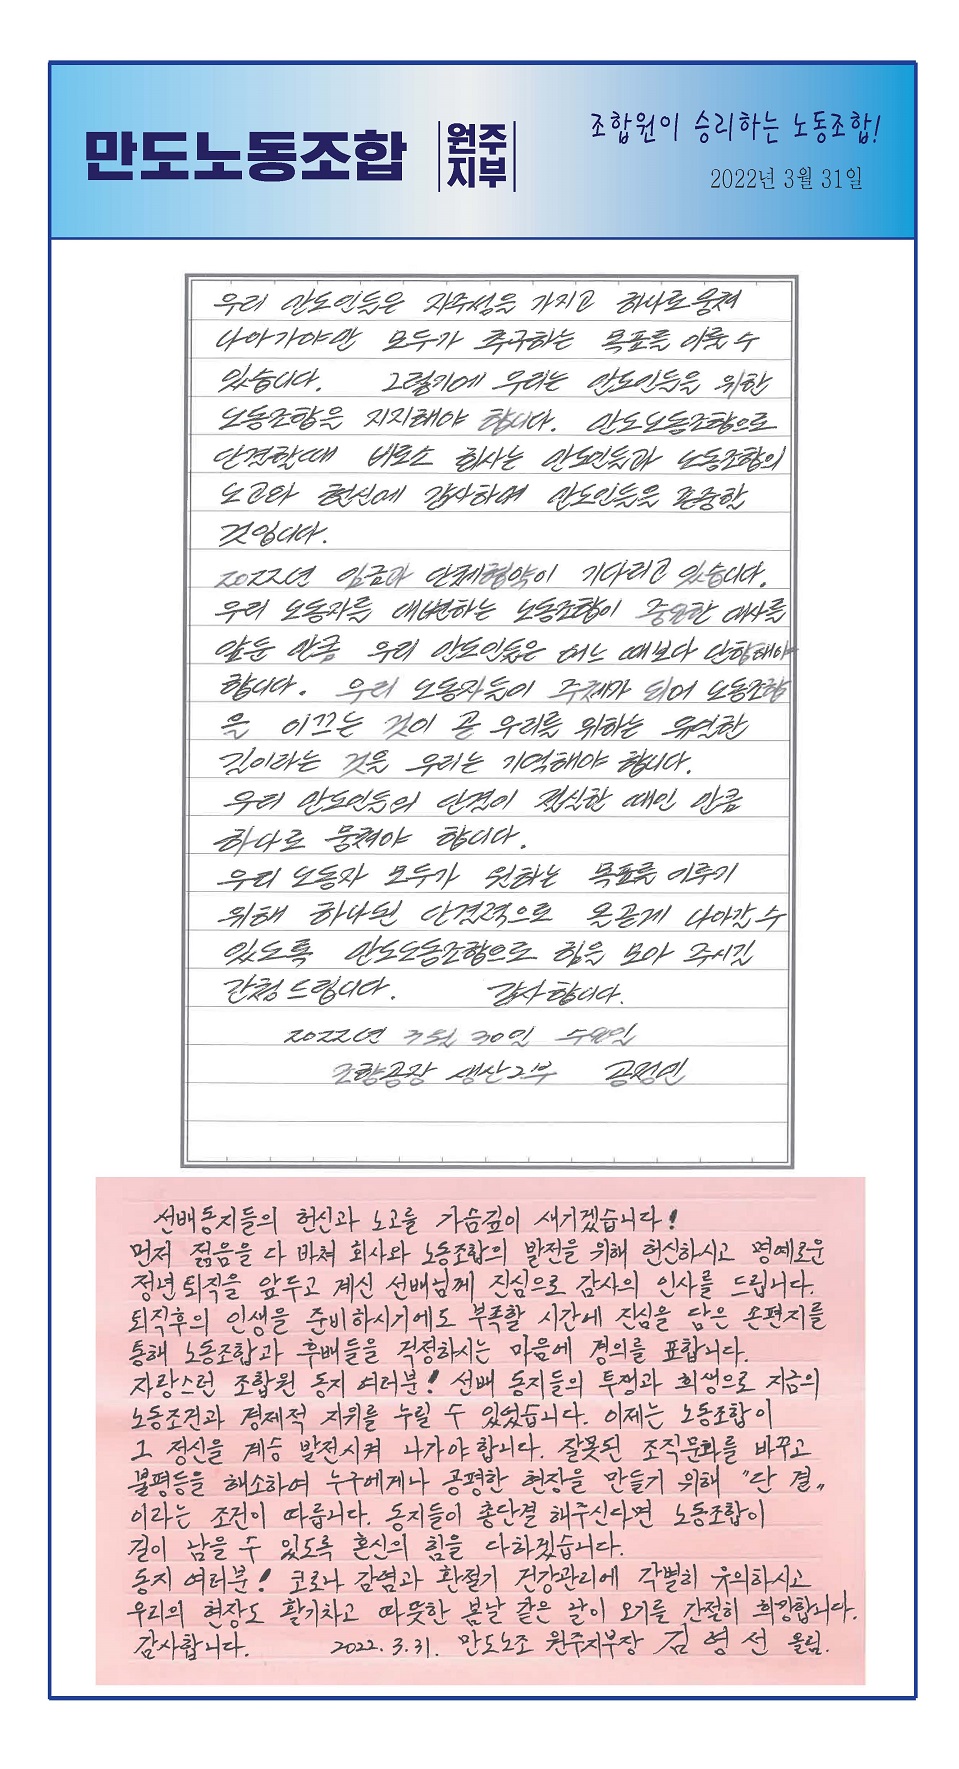 만도노동조합
원주
지부
조합원이 승리하는 노동조합!
2022년 3월 31일
우리 만도인들은 자주성을 가지고 하나로 뭉쳐
나아가야만 모두가 추구하는 목표를 이룰 수
있습니다. 그렇기에 우리는 만도인들을 위한
노동조합을 지지해야 합니다. 만도노동조합으로
단결할때 비로소 회사는 만도인들과 노동조합의
노고와 헌신에 감사하며 만도인들을 존중할
것입니다.
2022년 임금과 단체협약이 기다리고 있습니다.
우리 노동자를 대변하는 노동조합이 중요한 대사를
앞둔 만큼 우리 만도인들은 어느 때보다 단합해야
합니다. 우리 노동자들이 주체가 되어 노동조합
을 이끄는 것이 곧 우리를 위하는 유일한
길이라는 것을 우리는 기억해야 합니다.
우리 만도인들의 단결이 절실한 때인 만큼
하나로 뭉쳐야 합니다.
우리 노동자 모두가 원하는 목표를 이루기
위해 하나된 단결력으로 올곧게 나아갈 수
있도록 만도노동조합으로 힘을 모아 주시길
간청드립니다. 감사합니다.
2022년 3월 30일 수요일
조향공장 생산2부 공정민
선배동지들의 헌신과 노고를 가슴깊이 새기겠습니다!
먼저 젊음을 다 바쳐 회사와 노동조합의 발전을 위해 헌신하시고 명예로운
정년퇴직을 앞두고 계신 선배님께 진심으로 감사의 인사를 드립니다.
퇴직후의 인생을 준비하시기에도 부족할 시간에 진심을 담은 손편지를
통해 노동조합과 후배들을 걱정하시는 마음에 경의를 표합니다.
자랑스런 조합원 동지 여러분! 선배 동지들의 투쟁과 희생으로 지금의
노동조건과 경제적 지위를 누릴 수 있었습니다. 이제는 노동조합이
그 정신을 계승 발전시켜 나가야합니다. 잘못된 조직문화를 바꾸고
불평등을 해소하여 누구에게나 공평한 현장을 만들기 위해 "단 결"
이라는 조건이 따릅니다. 동지들이 총단결 해주신다면 노동조합이
길이 남을 수 있도록 혼신의 힘을 다하겠습니다.
동지 여러분! 코로나 감염과 환절기 건강관리에 각별히 유의하시고
우리의 현장도 활기차고 따뜻한 봄날 같은 날이 오기를 간절히 희망합니다.
감사합니다. 2022.3.31. 만도노조 원주지부장 김영선 올림.